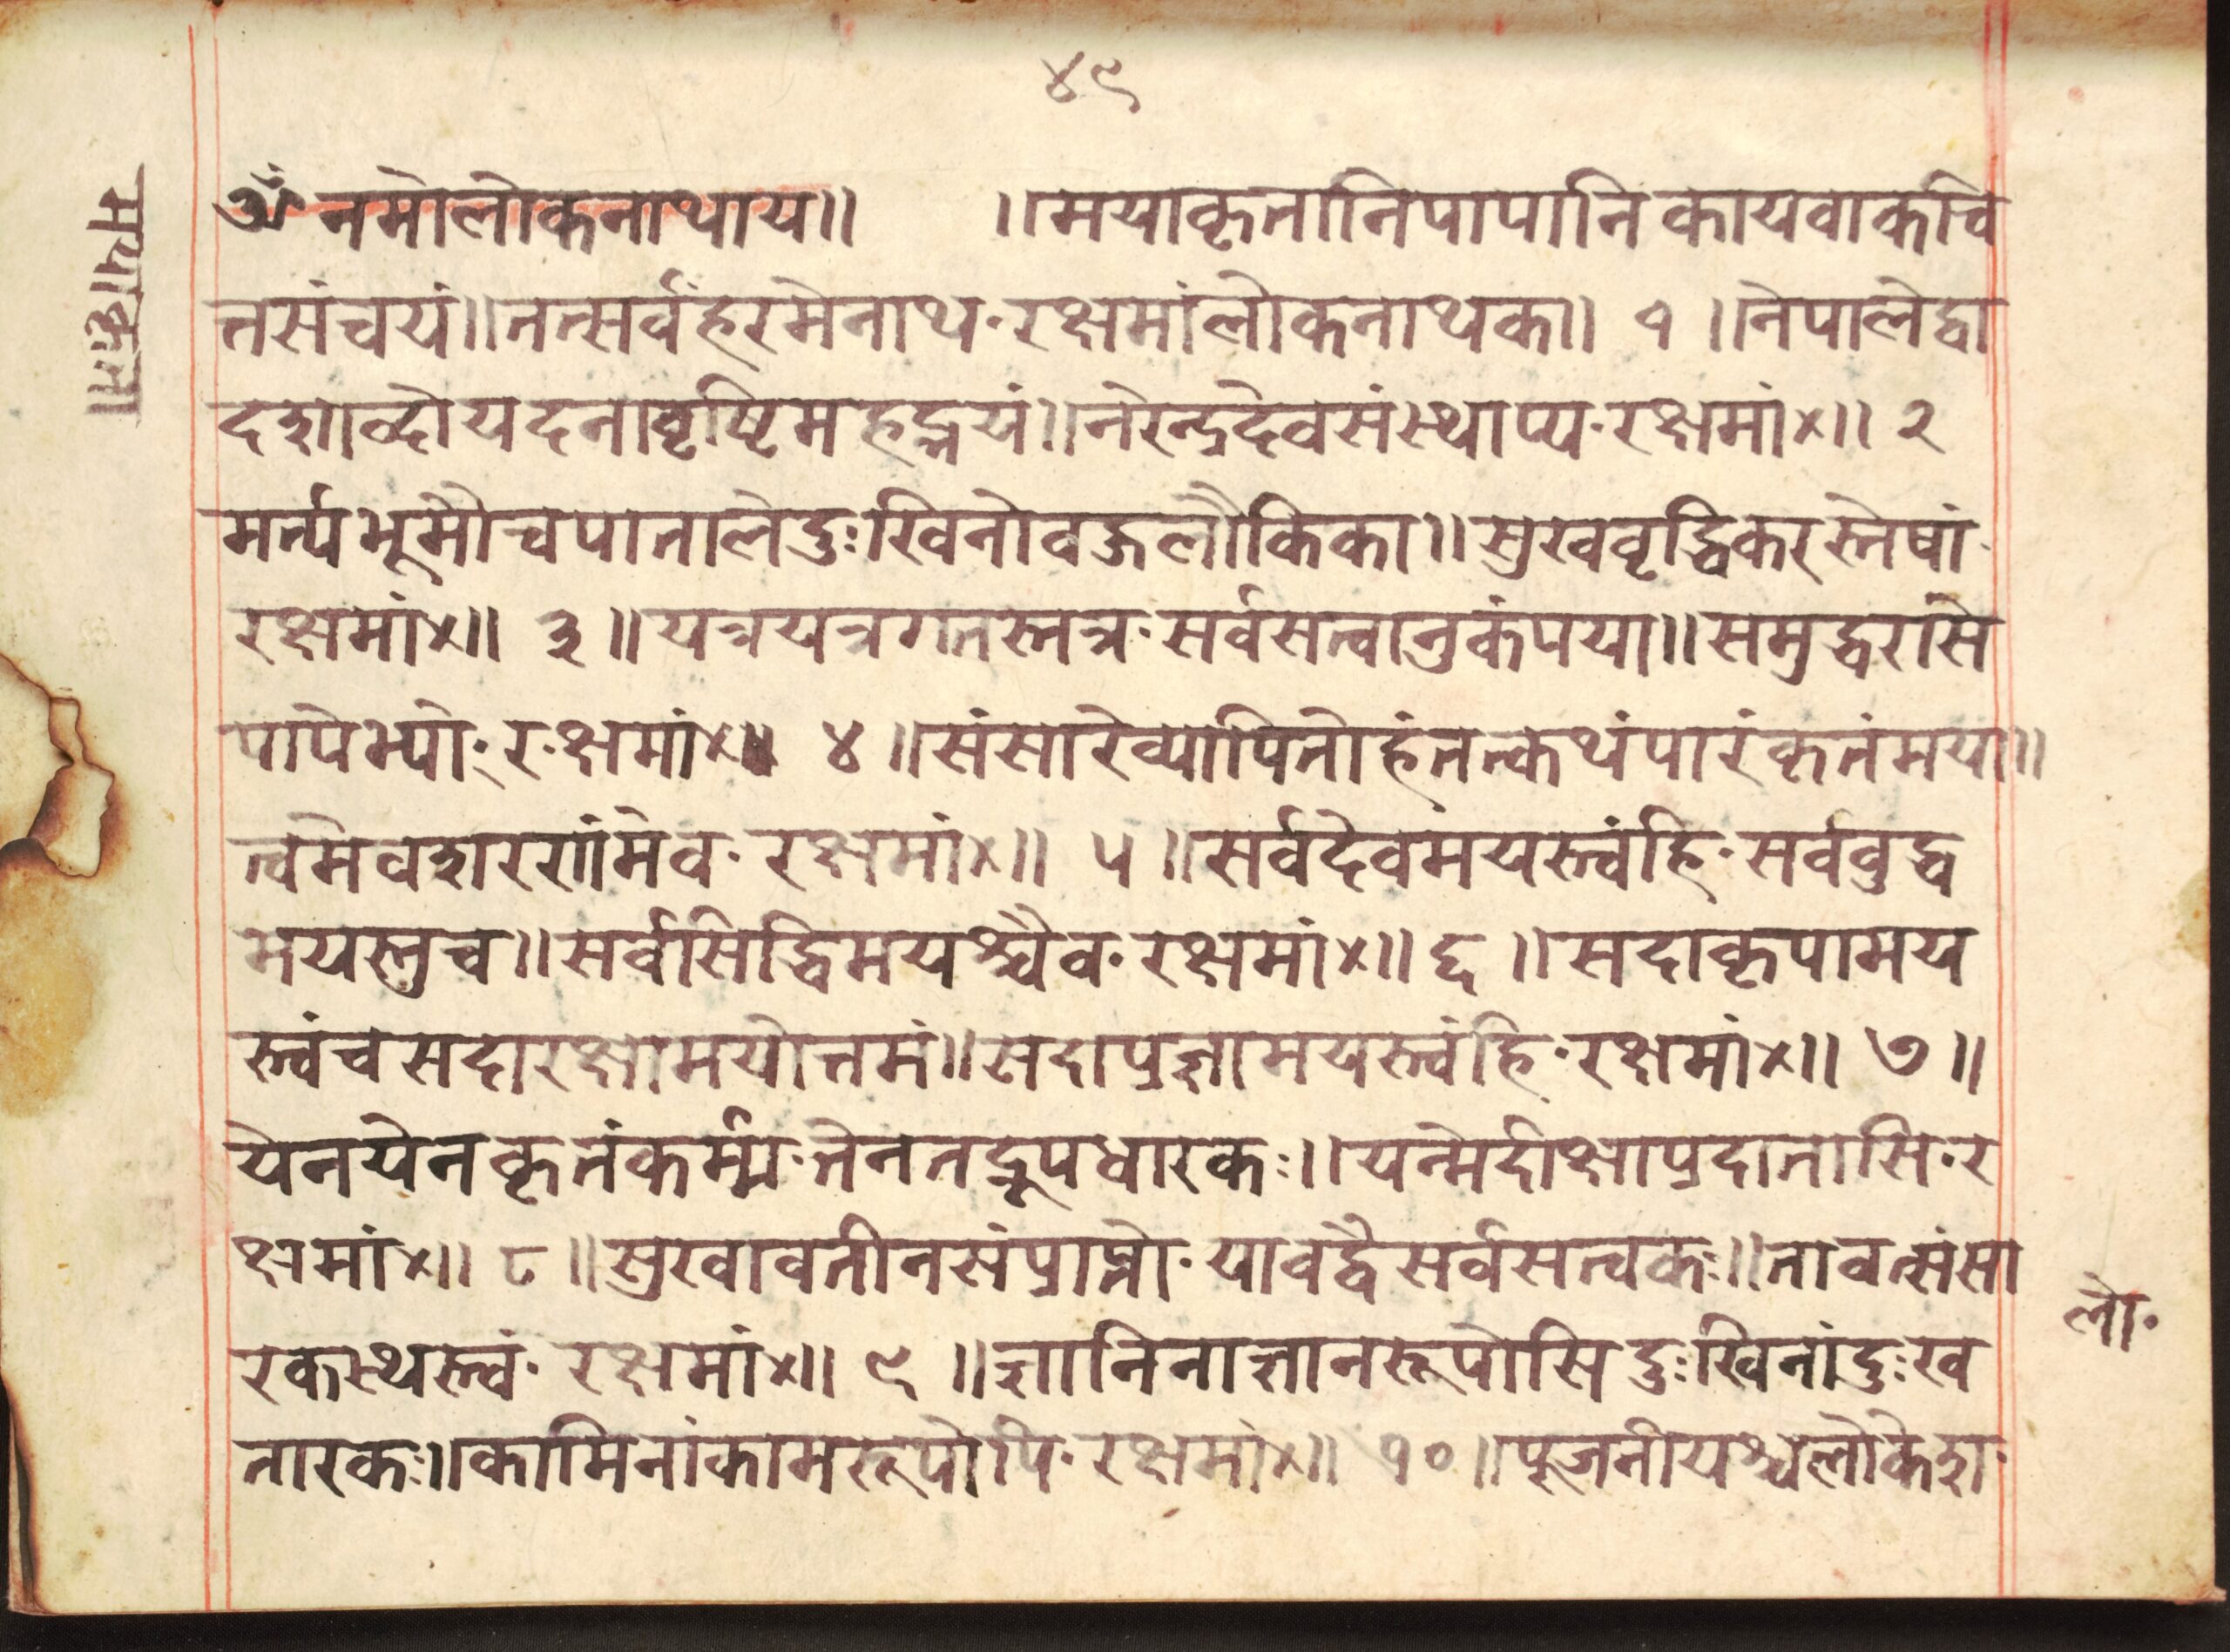 ४९
मयाकृता
ॐ नमोलोकनाथाय॥ ॥मयाकृतानिपापानिकायवाकचि
त्तसंचयं॥तत्सर्वंहरमेनाथ·रक्षमांलोकनाथक॥ १ ॥नेपालेद्वा
दशाव्दोयदनावृष्टिमहद्भयं॥नरेन्द्रदेवसंस्थाप्य·रक्षमां×॥ २
मर्त्यभूमौचपातालेदुःखिनोवज्रलौकिका॥सुखवृद्धिकरस्तेषां·
रक्षमां×॥ ३ ॥यत्रयत्रगतस्तत्र·सर्वसत्वानुकंपया॥समुद्धरासि
पापेभ्यो·रक्षमां×॥ ४ ॥संसारेव्यापितोहंतत्कथंपारंकृतंमया॥
त्वमेवशरणंमेव·रक्षमां×॥ ५ ॥सर्वदेवमयस्त्वंहि·सर्ववुद्ध
मयस्तुच॥सर्वसिद्धिमयश्चैव·रक्षमां×॥ ६ ॥सदाकृपामय
स्त्वंचसदारक्षामयोत्तमं॥सदाप्रज्ञामयस्त्वंहि·रक्षमां×॥ ७ ॥
येनयेनकृतंकर्म्म·तेनतद्रूपधारकः॥यन्मेदीक्षाप्रदातासि·र
क्षमां×॥ ८ ॥सुखावतीनसंप्राप्तो·यावद्वैसर्वसत्वकः॥तावत्संसा
रकस्थस्त्वं·रक्षमां×॥ ९ ॥ज्ञानिनाज्ञानरूपोसिदुःखिनांदुःख
तारकः॥कामिनांकामरूपोपि·रक्षमां×॥ १० ॥पूजनीयश्चलोकेश·
लो·